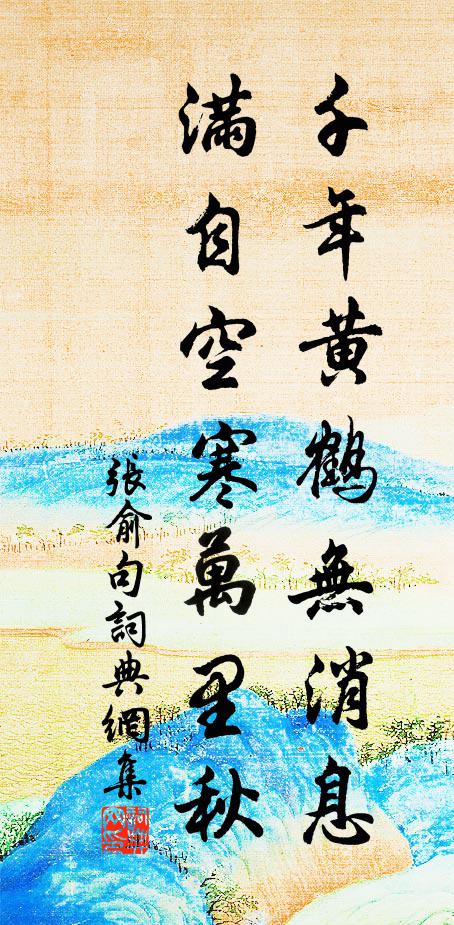 千年黃鶴無消息
滿自空寒萬里秋
張俞句詞典網集